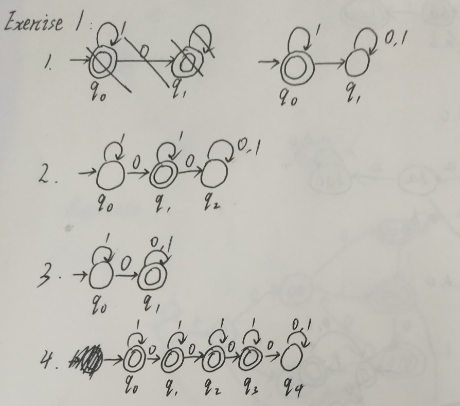 Exercise 1:
1. 1 0 q0 q1 1 0,1 q0 q1
2. 1 0 1 0 0,1 q0 q1 q2
3. 1 0 0,1 q0 q1
4. 1 0 1 0 1 0 1 0 0,1 q0 q1 q2 q3 q4